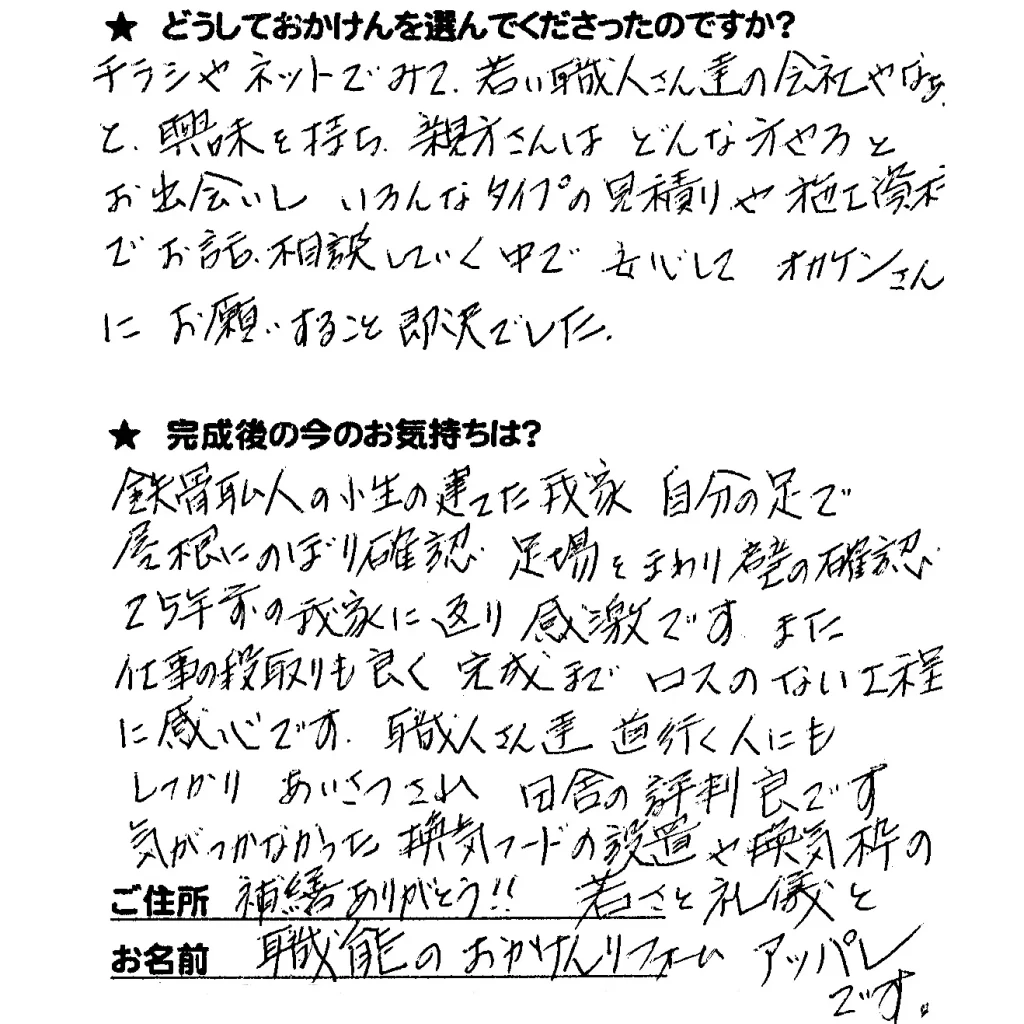 ★ どうしておかけんを選んでくださったのですか?
チラシや ネットでみて、若い職人さん達の会社やなぁ
と、興味を持ち、親方さんは どんな方やろと
お出会いし いろんなタイプの見積りや 施工資料
でお話、相談していく中で 安心して オカケンさん
に お願いすること即決でした。
★ 完成後の今のお気持ちは?
鉄骨職人の小生の建てた我家 自分の足で
屋根にのぼり確認 足場をまわり壁の確認
25年前の我家に返り 感激です。また
仕事の段取りも良く 完成まで ロスのない工程
に感心です。職人さん達 道行く人にも
しっかり あいさつされ 田舎の評判良です
気がつかなかった 換気フードの設置や換気枠の
ご住所 補繕ありがとう!! 若さと礼儀と
お名前 職能のおかけんリフォーム アッパレ
です。